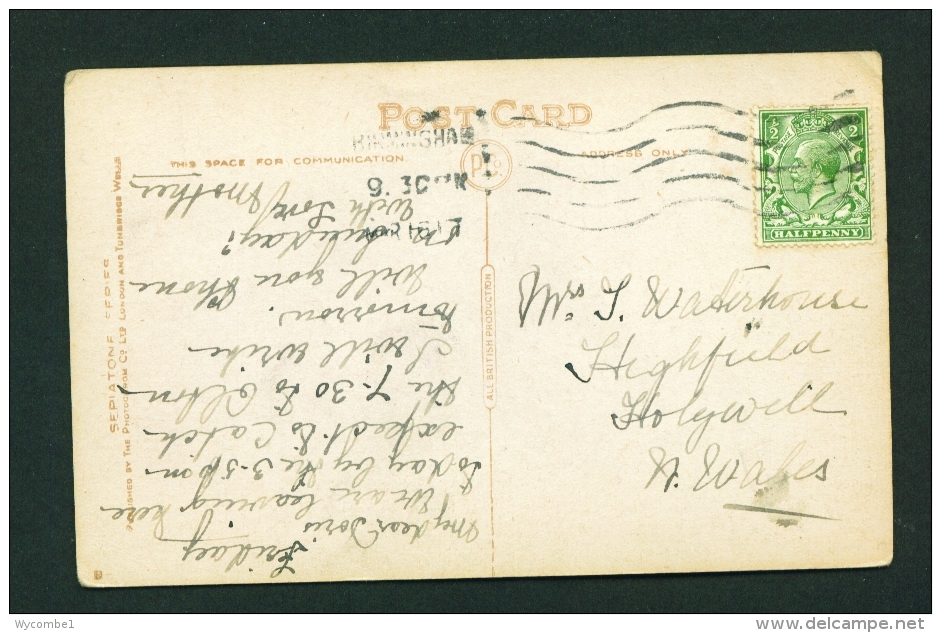 POST CARD
THIS SPACE FOR COMMUNICATION.
ADDRESS ONLY
BIRMINGHAM
9. 30
HALFPENNY
Friday
My dear Doris,
We are leaving here
to day by the 3-5 pm
expect to catch
the 7-30 to Olton
I will write
tomorrow.
Will you Phone
With Love
Mother
Mrs T. Waterhouse
Highfield
Holywell
N. Wales
ALL BRITISH PRODUCTION
SEPIATONE SERIES
PUBLISHED BY THE PHOTOCHROM CO LTD LONDON AND TUNBRIDGE WELLS
Wycombe1
www.delcampe.net